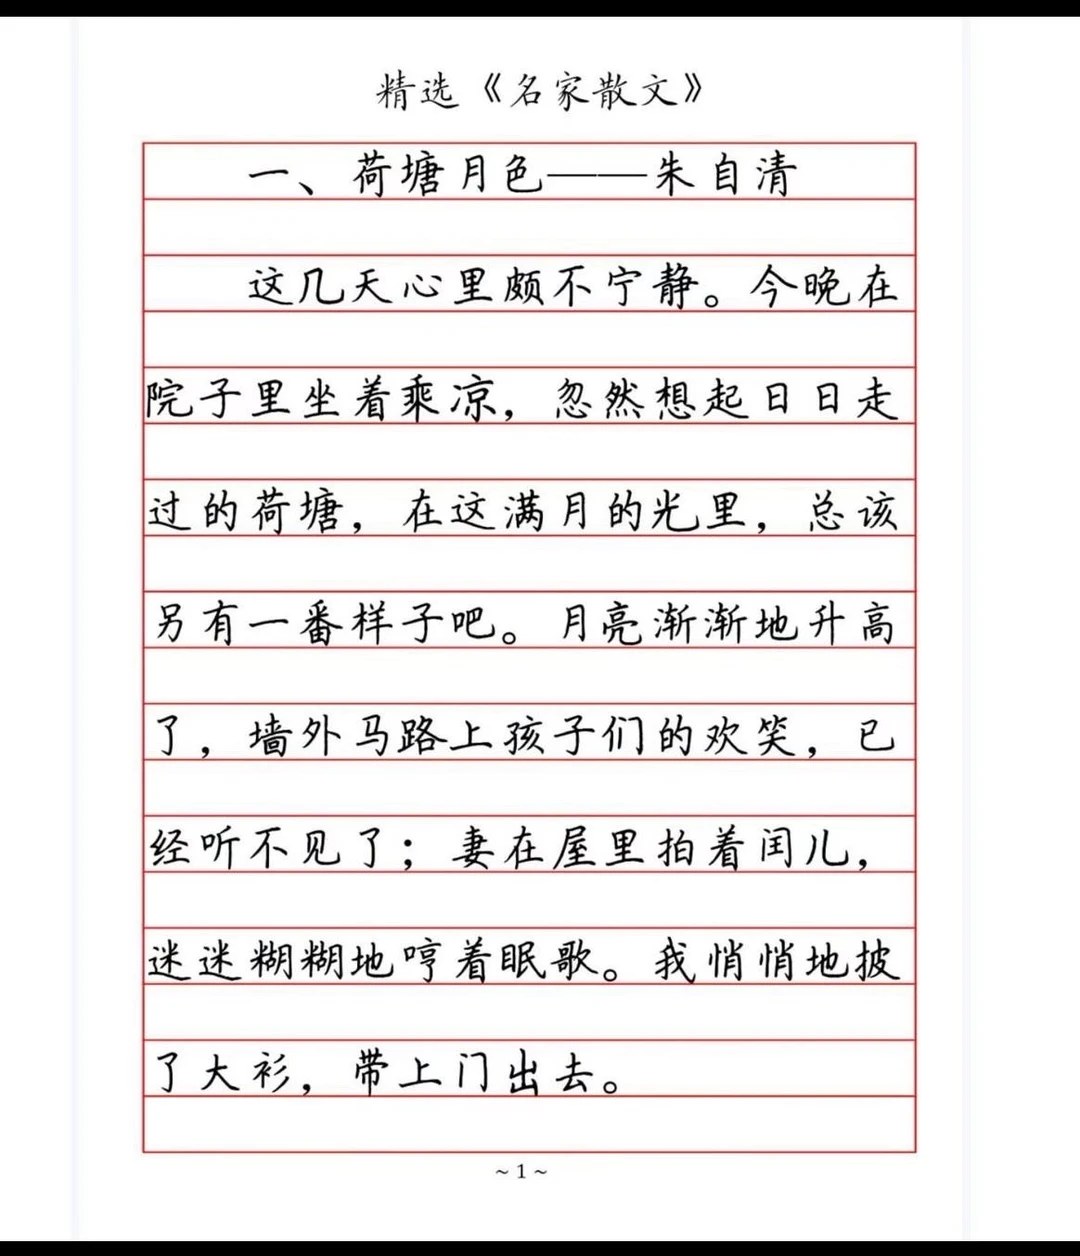 精选《名家散文》
一、荷塘月色——朱自清
这几天心里颇不宁静。今晚在
院子里坐着乘凉，忽然想起日日走
过的荷塘，在这满月的光里，总该
另有一番样子吧。月亮渐渐地升高
了，墙外马路上孩子们的欢笑，已
经听不见了；妻在屋里拍着闰儿，
迷迷糊糊地哼着眠歌。我悄悄地披
了大衫，带上门出去。
~ 1 ~